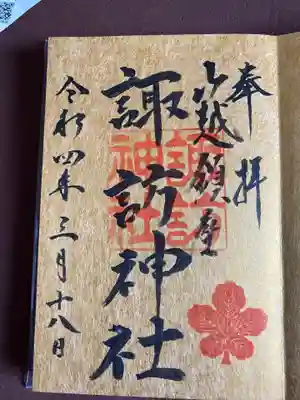 奉拝
越
諏訪神社
諏訪
神社
令和四年三月十八日